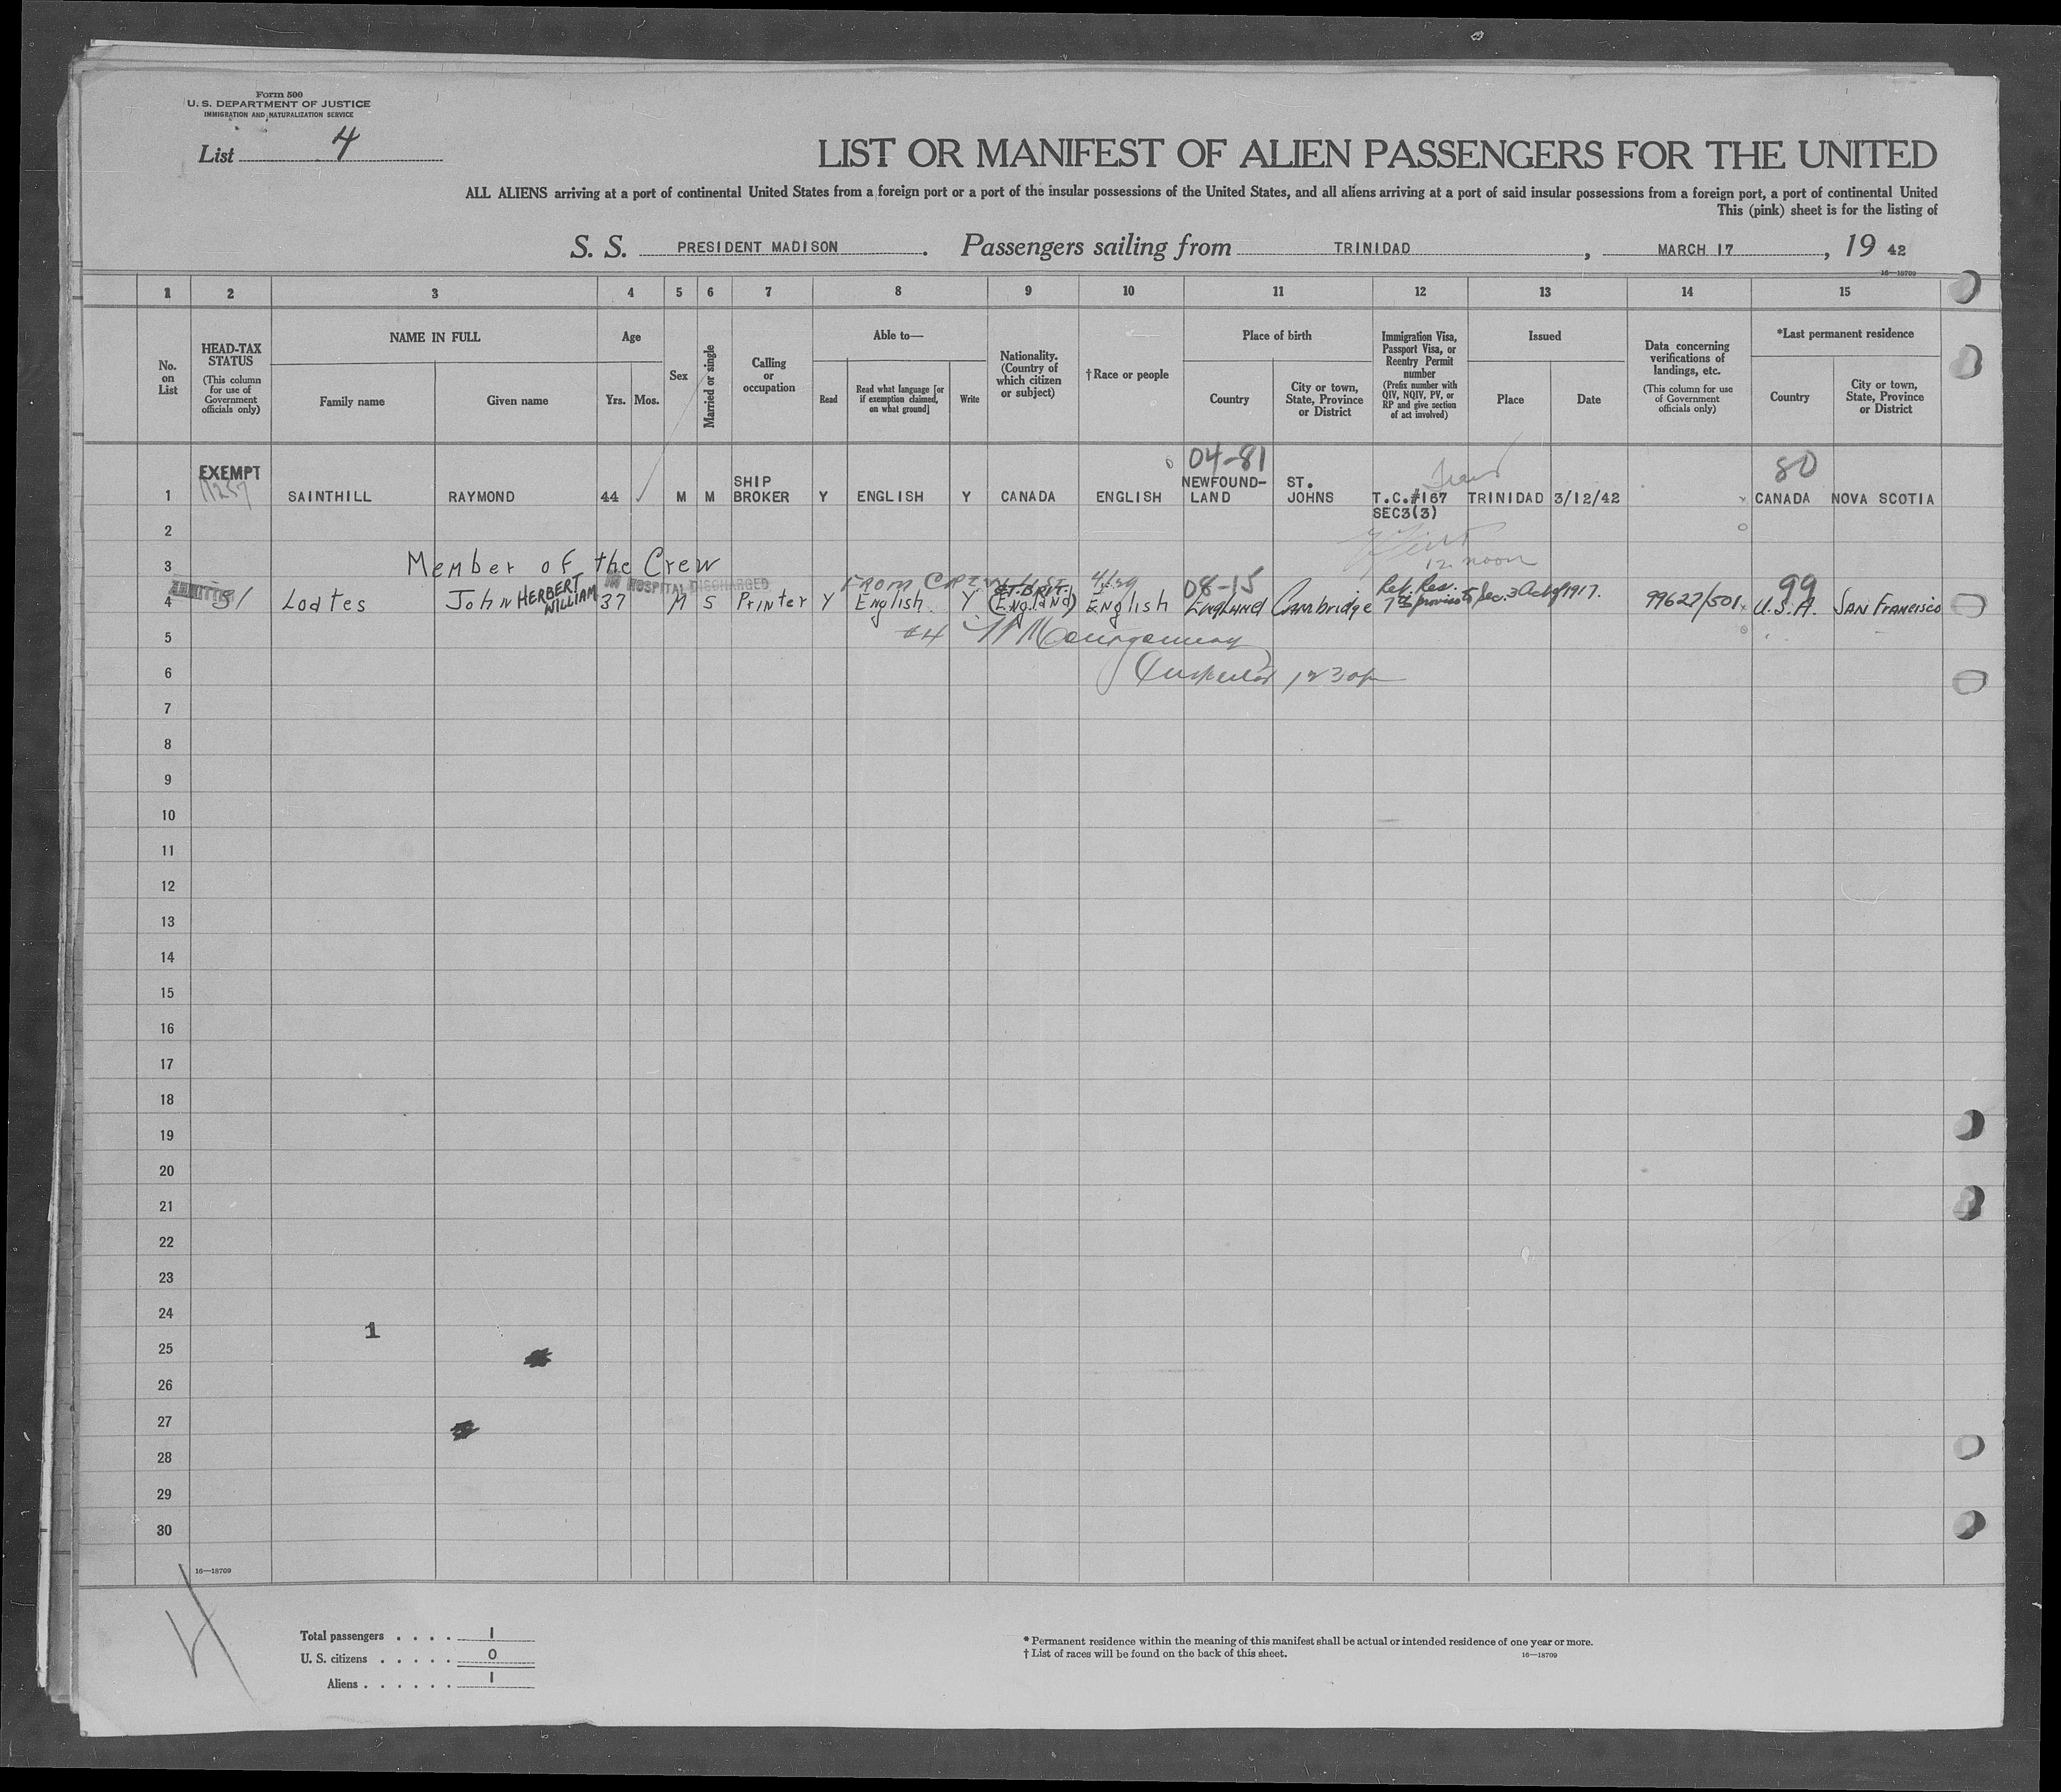 Form 500
U. S. DEPARTMENT OF JUSTICE
IMMIGRATION AND NATURALIZATION SERVICE
List 4
LIST OR MANIFEST OF ALIEN PASSENGERS FOR THE UNITED
ALL ALIENS arriving at a port of continental United States from a foreign port or a port of the insular possessions of the United States, and all aliens arriving at a port of said insular possessions from a foreign port, a port of continental United
This (pink) sheet is for the listing of
S. S. PRESIDENT MADISON. Passengers sailing from TRINIDAD, MARCH 17, 19 42
16—18709
1 2 3 4 5 6 7 8 9 10 11 12 13 14 15
No. on List
HEAD-TAX STATUS
(This column for use of Government officials only)
NAME IN FULL
Family name
Given name
Age
Yrs.
Mos.
Sex
Married or single
Calling or occupation
Able to—
Read
Read what language [or if exemption claimed, on what ground]
Write
Nationality. (Country of which citizen or subject)
†Race or people
Place of birth
Country
City or town, State, Province or District
Immigration Visa, Passport Visa, or Reentry Permit number
(Prefix number with QIV, NQIV, PV, or RP and give section of act involved)
Issued
Place
Date
Data concerning verifications of landings, etc.
(This column for use of Government officials only)
*Last permanent residence
Country
City or town, State, Province or District
EXEMPT 04-81 80
1 SAINTHILL RAYMOND 44 M M SHIP BROKER Y ENGLISH Y CANADA ENGLISH NEWFOUND-LAND ST. JOHNS T.C.#167 SEC3(3) TRINIDAD 3/12/42 CANADA NOVA SCOTIA
2
12 noon
3 Member of the Crew
IN HOSPITAL DISCHARGED From Crew List 08-15 99
4 Loates John HERBERT WILLIAM 37 M S Printer Y English Y GT. BRIT. (England) English England Cambridge Ret. Res. 7th proviso to Sec. 3 Act of 1917. 99627/501 U.S.A. SAN FRANCISCO
5 #4 Montgomery
6 Inspector 1230p
7
8
9
10
11
12
13
14
15
16
17
18
19
20
21
22
23
24
1
25
26
27
28
29
30
16—18709
Total passengers . . . . 1
U. S. citizens . . . . . 0
Aliens . . . . . . 1
* Permanent residence within the meaning of this manifest shall be actual or intended residence of one year or more.
† List of races will be found on the back of this sheet.
16—18709